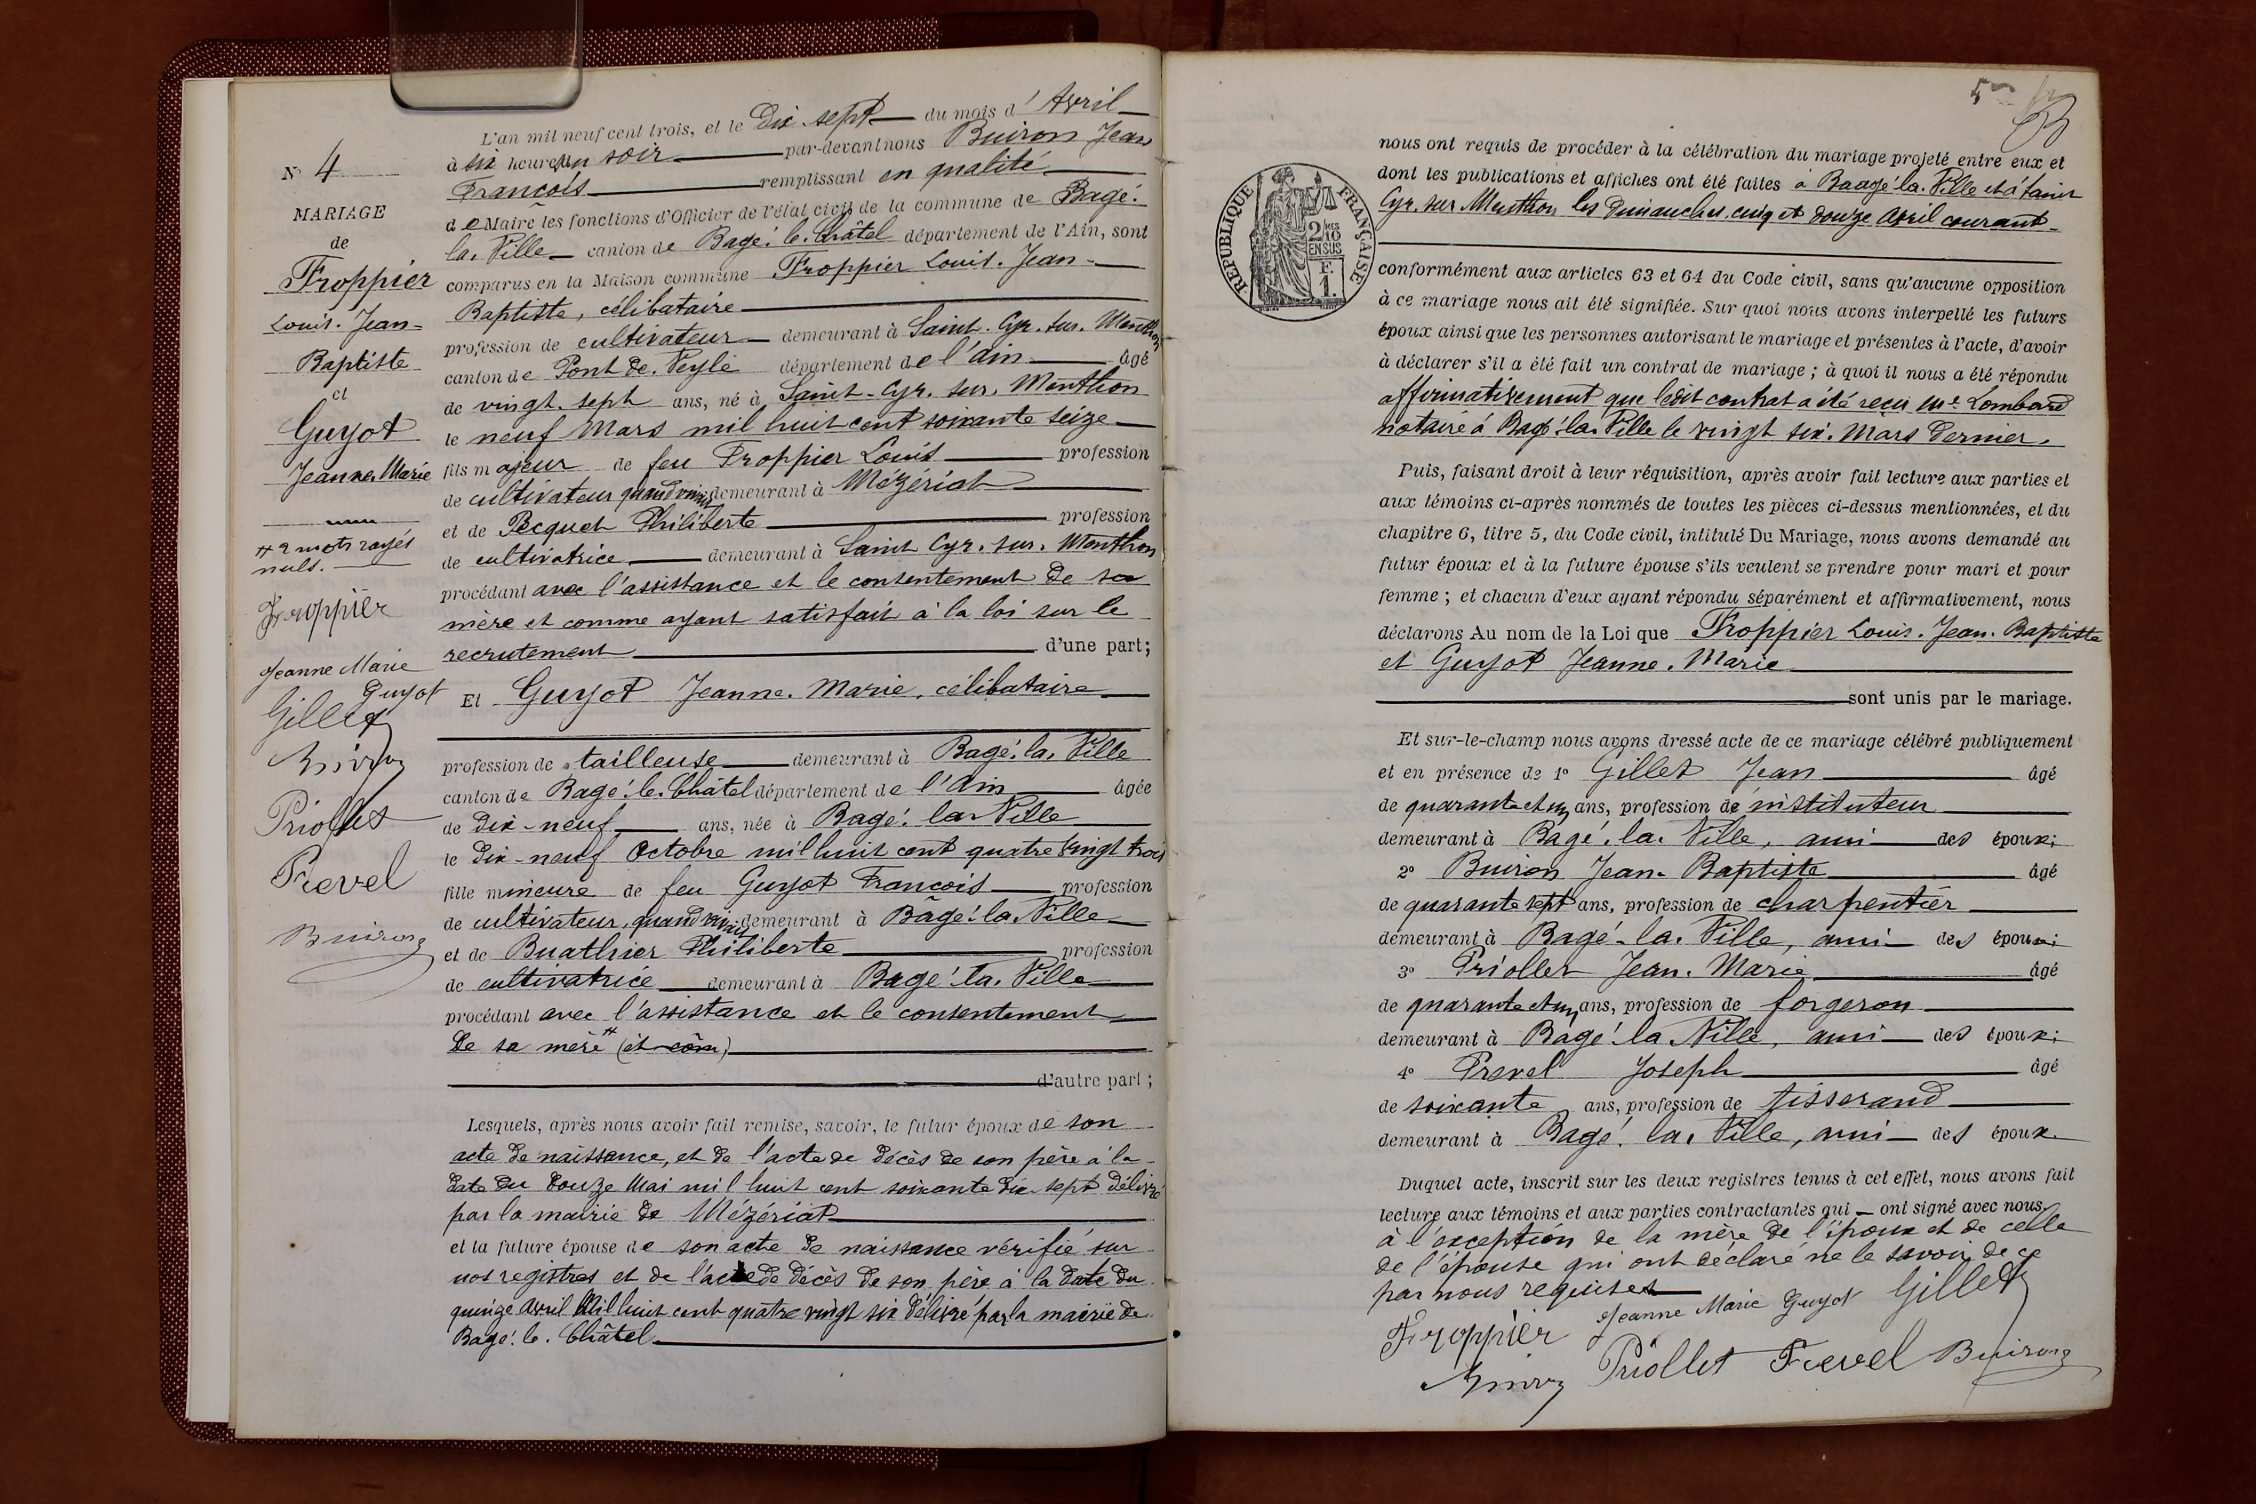 N° 4
MARIAGE
de
Froppier
Louis-Jean-
Baptiste
et
Guyot
Jeanne-Marie
# 2 mots rayés
nuls.
Froppier
Jeanne Marie
Guyot
Gillet
Priollet
Prevel
Buiron
L'an mil neuf cent trois, et le Dix-sept du mois d'Avril
à six heures du soir par-devant nous Buiron Jean
François remplissant en qualité
de Maire les fonctions d'Officier de l'état civil de la commune de Bagé-
la-Ville canton de Bagé-le-Châtel département de l'Ain, sont
comparus en la Maison commune Froppier Louis-Jean-
Baptiste, célibataire
profession de cultivateur demeurant à Saint-Cyr-sur-Menthon
canton de Pont-de-Veyle département de l'Ain âgé
de vingt-sept ans, né à Saint-Cyr-sur-Menthon
le neuf Mars mil huit cent soixante seize
fils majeur de feu Froppier Louis profession
de cultivateur quand vivait demeurant à Mézériat
et de Pecquet Philiberte profession
de cultivatrice demeurant à Saint Cyr-sur-Menthon
procédant avec l'assistance et le consentement de sa
mère et comme ayant satisfait à la loi sur le
recrutement d'une part;
Et Guyot Jeanne-Marie, célibataire
profession de tailleuse demeurant à Bagé-la-Ville
canton de Bagé-le-Châtel département de l'Ain âgée
de dix-neuf ans, née à Bagé-la-Ville
le dix-neuf Octobre mil huit cent quatre vingt trois
fille mineure de feu Guyot François profession
de cultivateur, quand vivait demeurant à Bâgé-la-Ville
et de Buathier Philiberte profession
de cultivatrice demeurant à Bagé-la-Ville
procédant avec l'assistance et le consentement
de sa mère # (et com)
d'autre part;
Lesquels, après nous avoir fait remise, savoir, le futur époux de son
acte de naissance, et de l'acte de décès de son père à la
date du douze Mai mil huit cent soixante dix-sept délivré
par la mairie de Mézériat
et la future épouse de son acte de naissance vérifié sur
nos registres et de l'acte de décès de son père à la date du
quinze Avril Mil huit cent quatre vingt six délivré par la mairie de
Bagé-le-Châtel
5
nous ont requis de procéder à la célébration du mariage projeté entre eux et
dont les publications et affiches ont été faites à Baagé-la-Ville et à Saint
Cyr-sur-Menthon les Dimanches, cinq et douze Avril courant
REPUBLIQUE FRANÇAISE
2 MES
10
EN SUS
F.
1.
conformément aux articles 63 et 64 du Code civil, sans qu'aucune opposition
à ce mariage nous ait été signifiée. Sur quoi nous avons interpellé les futurs
époux ainsi que les personnes autorisant le mariage et présentes à l'acte, d'avoir
à déclarer s'il a été fait un contrat de mariage; à quoi il nous a été répondu
affirmativement que ledit contrat a été reçu Me Lombard
notaire à Bagé-la-Ville le vingt six Mars dernier.
Puis, faisant droit à leur réquisition, après avoir fait lecture aux parties et
aux témoins ci-après nommés de toutes les pièces ci-dessus mentionnées, et du
chapitre 6, titre 5, du Code civil, intitulé Du Mariage, nous avons demandé au
futur époux et à la future épouse s'ils veulent se prendre pour mari et pour
femme; et chacun d'eux ayant répondu séparément et affirmativement, nous
déclarons Au nom de la Loi que Froppier Louis-Jean-Baptiste
et Guyot Jeanne-Marie
sont unis par le mariage.
Et sur-le-champ nous avons dressé acte de ce mariage célébré publiquement
et en présence de 1° Gillet Jean âgé
de quarante et un ans, profession de instituteur
demeurant à Bagé-la-Ville, ami des époux;
2° Buiron Jean-Baptiste âgé
de quarante sept ans, profession de charpentier
demeurant à Bagé-la-Ville, ami des époux;
3° Priollet Jean-Marie âgé
de quarante et un ans, profession de forgeron
demeurant à Bagé-la Ville, ami des époux;
4° Prevel Joseph âgé
de soixante ans, profession de tisserand
demeurant à Bagé-la-Ville, ami des époux.
Duquel acte, inscrit sur les deux registres tenus à cet effet, nous avons fait
lecture aux témoins et aux parties contractantes qui ont signé avec nous
à l'exception de la mère de l'époux et de celle
de l'épouse qui ont déclaré ne le savoir de ce
par nous requises
Froppier Jeanne Marie Guyot Gillet
Priollet Prevel Buiron